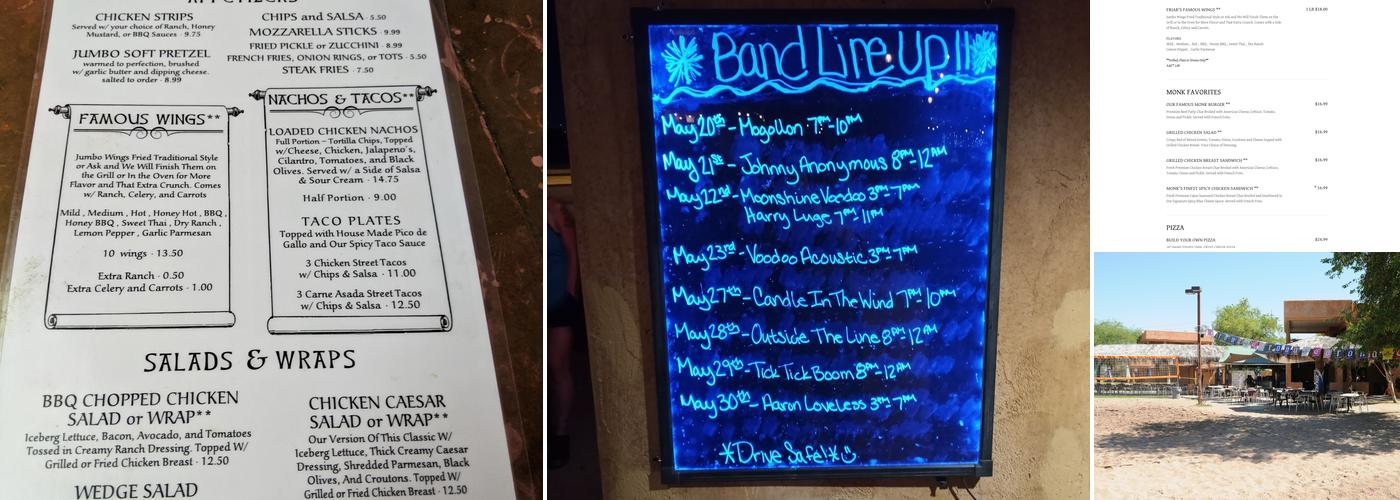 APPETIZERS
CHICKEN STRIPS
Served w/ your choice of Ranch, Honey
Mustard, or BBQ Sauces · 9.75
JUMBO SOFT PRETZEL
warmed to perfection, brushed
w/ garlic butter and dipping cheese.
salted to order · 8.99
CHIPS and SALSA · 5.50
MOZZARELLA STICKS · 9.99
FRIED PICKLE or ZUCCHINI · 8.99
FRENCH FRIES, ONION RINGS, or TOTS · 5.50
STEAK FRIES · 7.50
FAMOUS WINGS**
Jumbo Wings Fried Traditional Style
or Ask and We Will Finish Them on
the Grill or In the Oven for More
Flavor and That Extra Crunch. Comes
w/ Ranch, Celery, and Carrots
Mild , Medium , Hot , Honey Hot , BBQ ,
Honey BBQ , Sweet Thai , Dry Ranch ,
Lemon Pepper , Garlic Parmesan
10 wings · 13.50
Extra Ranch · 0.50
Extra Celery and Carrots · 1.00
NACHOS & TACOS**
LOADED CHICKEN NACHOS
Full Portion – Tortilla Chips, Topped
w/Cheese, Chicken, Jalapeno's,
Cilantro, Tomatoes, and Black
Olives. Served w/ a Side of Salsa
& Sour Cream · 14.75
Half Portion · 9.00
TACO PLATES
Topped with House Made Pico de
Gallo and Our Spicy Taco Sauce
3 Chicken Street Tacos
w/ Chips & Salsa · 11.00
3 Carne Asada Street Tacos
w/ Chips & Salsa · 12.50
SALADS & WRAPS
BBQ CHOPPED CHICKEN
SALAD or WRAP**
Iceberg Lettuce, Bacon, Avocado, and Tomatoes
Tossed in Creamy Ranch Dressing. Topped W/
Grilled or Fried Chicken Breast · 12.50
WEDGE SALAD
CHICKEN CAESAR
SALAD or WRAP**
Our Version Of This Classic W/
Iceberg Lettuce, Thick Creamy Caesar
Dressing, Shredded Parmesan, Black
Olives, And Croutons. Topped W/
Grilled or Fried Chicken Breast · 12.50
Band Line Up!!
May 20th - Mogollon 7PM-10PM
May 21st - Johnny Anonymous 8PM-12AM
May 22nd - Moonshine Voodoo 3PM-7PM
Harry Luge 7PM-11PM
May 23rd - Voodoo Acoustic 3PM-7PM
May 27th - Candle In The Wind 7PM-10PM
May 28th - Outside The Line 8PM-12AM
May 29th - Tick Tick Boom 8PM-12AM
May 30th - Aaron Loveless 3PM-7PM
*Drive Safe!*
FRIAR'S FAMOUS WINGS ** 1 LB $18.00
Jumbo Wings Fried Traditional Style or Ask and We Will Finish Them on the
Grill or In the Oven for More Flavor and That Extra Crunch. Comes with a Side
of Ranch, Celery, and Carrots.
FLAVORS
Mild , Medium , Hot , BBQ , Honey BBQ , Sweet Thai , Dry Ranch
Lemon Pepper , Garlic Parmesan
MONK FAVORITES
OUR FAMOUS MONK BURGER ** $16.99
GRILLED CHICKEN SALAD ** $16.99
GRILLED CHICKEN BREAST SANDWICH ** $16.99
MONK'S FINEST SPICY CHICKEN SANDWICH ** 16.99
PIZZA
BUILD YOUR OWN PIZZA $24.99